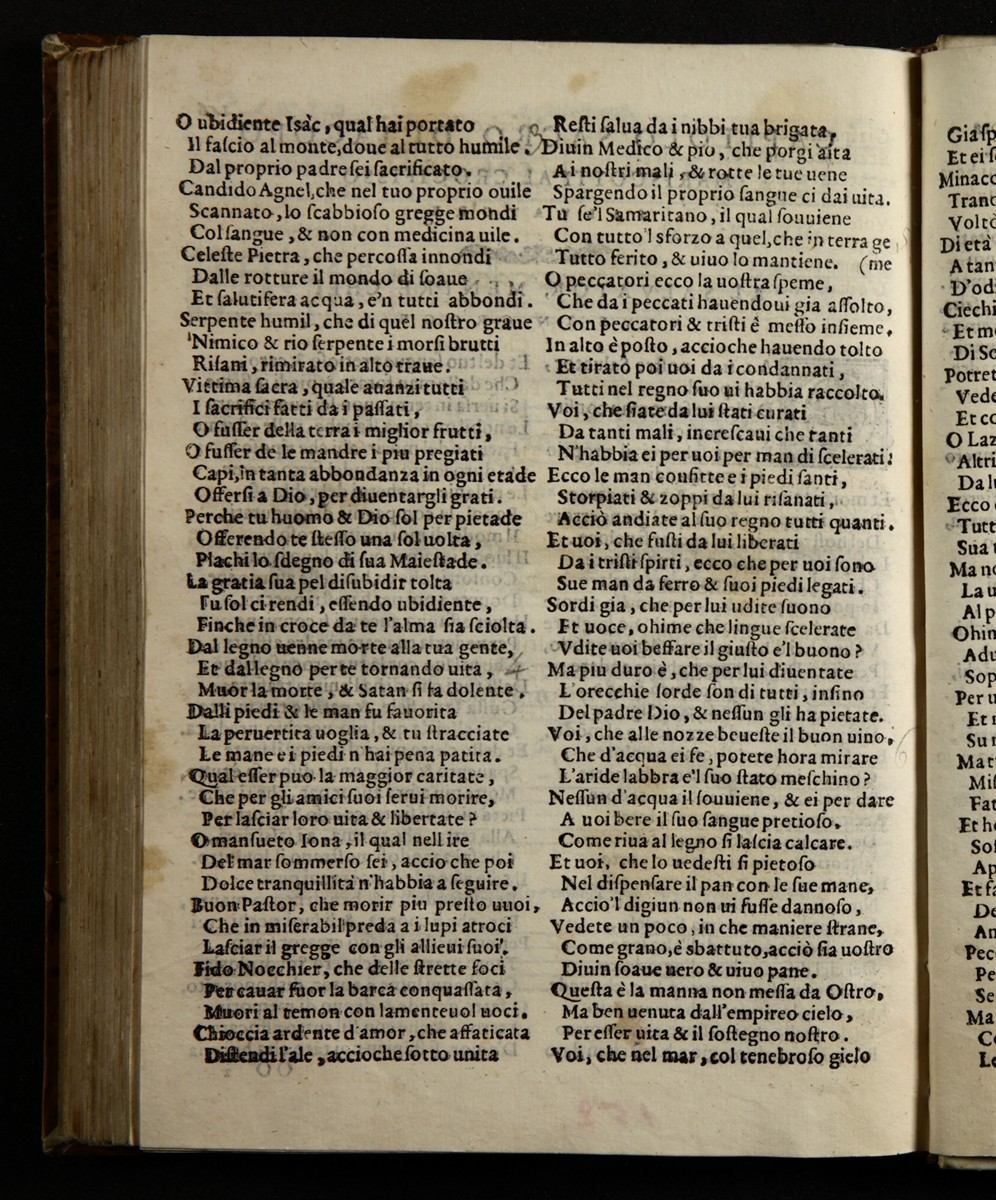 O ubidiente Isac, qual hai portato
Il fascio al monte, doue al tutto humile
Dal proprio padre sei sacrificato.
Candido Agnel, che nel tuo proprio ouile
Scannato, lo scabbioso gregge mondi
Col sangue, & non con medicina uile.
Celeste Pietra, che percossa innondi
Dalle rotture il mondo di soaue
Et salutifera acqua, e'n tutti abbondi.
Serpente humil, che di quel nostro graue
Nimico & rio serpente i morsi brutti
Risani, rimirato in alto traue.
Vittima sacra, quale auanzi tutti
I sacrifici fatti da i passati,
O fusser della terra i miglior frutti,
O fusser de le mandre i piu pregiati
Capi, in tanta abbondanza in ogni etade
Offersi a Dio, per diuentargli grati.
Perche tu huomo & Dio sol per pietade
Offerendo te stesso una sol uolta,
Plachi lo sdegno di sua Maiestade.
La gratia sua pel disubidir tolta
Tu sol ci rendi, essendo ubidiente,
Finche in croce da te l'alma sia sciolta.
Dal legno uenne morte alla tua gente,
Et dal legno per te tornando uita,
Muor la morte, & Satan si fa dolente.
Dalli piedi & le man fu fauorita
La peruertita uoglia, & tu stracciate
Le mane e i piedi n'hai pena patita.
Qual esser puo la maggior caritate,
Che per gli amici suoi serui morire,
Per lasciar loro uita & libertate?
O mansueto Iona, il qual nell ire
Del mar sommerso sei, accio che poi
Dolce tranquillità n'habbia a seguire.
Buon Pastor, che morir piu presto uuoi,
Che in miserabil preda a i lupi atroci
Lasciar il gregge con gli allieui suoi.
Fido Nocchier, che delle strette foci
Per cauar fuor la barca conquassata,
Muori al temon con lamenteuol uoci.
Chioccia ardente d'amor, che affaticata
Distendi l'ale, accioche sotto unita
Resti salua da i nibbi tua brigata,
Diuin Medico & pio, che porgi aita
A i nostri mali, & rotte le tue uene
Spargendo il proprio sangue ci dai uita.
Tu se'l Samaritano, il qual souuiene
Con tutto'l sforzo a quel, che in terra ge
Tutto ferito, & uiuo lo mantiene. (me
O peccatori ecco la uostra speme,
Che da i peccati hauendoui gia assolto,
Con peccatori & tristi è messo insieme,
In alto è posto, accioche hauendo tolto
Et tirato poi uoi da i condannati,
Tutti nel regno suo ui habbia raccolto.
Voi, che siate da lui stati curati
Da tanti mali, increscaui che tanti
N'habbia ei per uoi per man di scelerati:
Ecco le man confitte e i piedi santi,
Storpiati & zoppi da lui risanati,
Acciò andiate al suo regno tutti quanti.
Et uoi, che fusti da lui liberati
Da i tristi spirti, ecco che per uoi sono
Sue man da ferro & suoi piedi legati.
Sordi gia, che per lui udite suono
Et uoce, ohime che lingue scelerate
Vdite uoi beffare il giusto e'l buono?
Ma piu duro è, che per lui diuentate
L'orecchie sorde son di tutti, insino
Del padre Dio, & nessun gli ha pietate.
Voi, che alle nozze beueste il buon uino,
Che d'acqua ei fe, potete hora mirare
L'aride labbra e'l suo stato meschino?
Nessun d'acqua il souuiene, & ei per dare
A uoi bere il suo sangue pretioso,
Come riua al legno si lascia calcare.
Et uoi, che lo uedesti si pietoso
Nel dispensare il pan con le sue mane,
Accio'l digiun non ui fusse dannoso,
Vedete un poco, in che maniere strane,
Come grano, è sbattuto, acciò sia uostro
Diuin soaue uero & uiuo pane.
Questa è la manna non messa da Ostro,
Ma ben uenuta dall'empireo cielo,
Per esser uita & il sostegno nostro.
Voi, che nel mar, col tenebroso gielo
Gia sp
Et ei s
Minacc
Tranc
Voltò
Di età
A tan
D'od
Ciechi
Et m
Di So
Potret
Vede
Et cc
O Laz
Altri
Da l
Ecco
Tutt
Sua
Ma n
La u
Al p
Ohin
Adu
Sop
Per u
Et
Su
Mat
Mis
Fat
Et h
Sof
Ap
Et fa
De
An
Pec
Pe
Se
Ma
C
Le